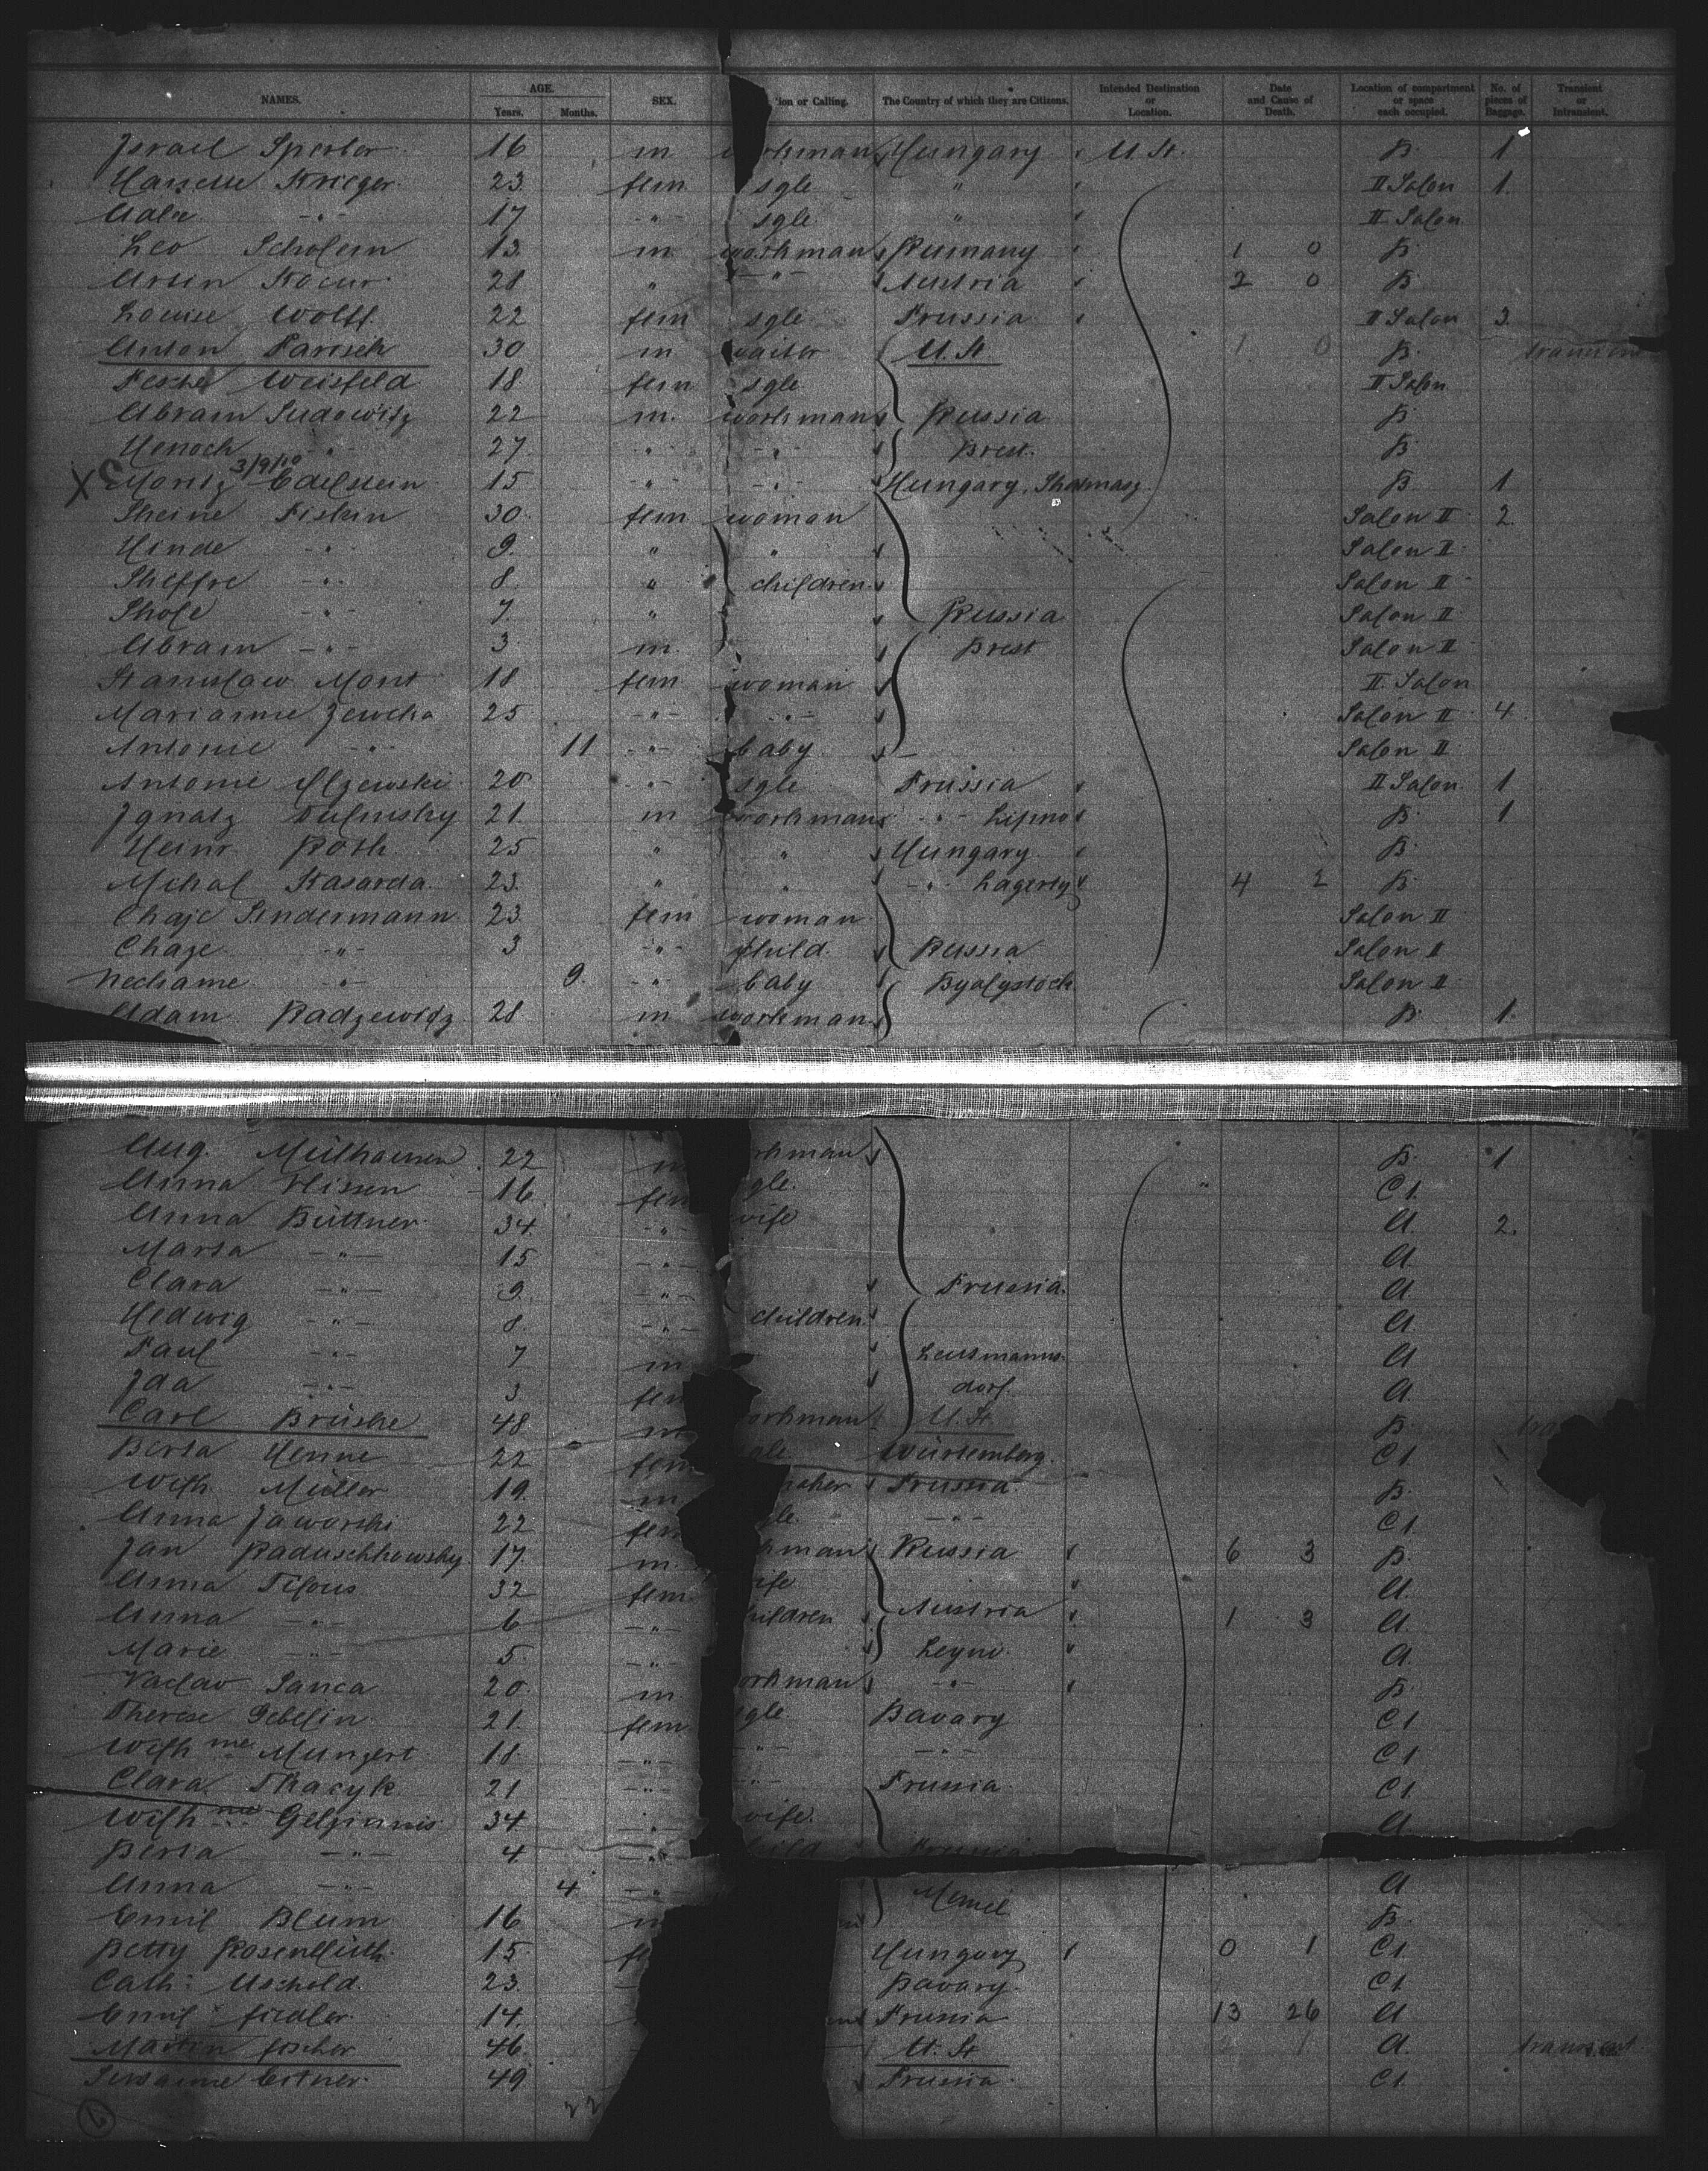 NAMES. AGE. Years. Months. SEX. ion or Calling. The Country of which they are Citizens. Intended Destination or Location. Date and Cause of Death. Location of compartment or space each occupied. No. of pieces of Baggage. Transient or Intransient.
Israel Sperber 16 m workman Hungary U. St. B. 1
Krieger 23. fem sgle " II Salon 1.
17 -"- sgle " II Salon
Leo Scholem 13. m workman Rumany 1 0 B.
Kocur 28 " -"- Austria 2 0 B
Louise Wolff 22 fem sgle Prussia II Salon 3.
Anton Parisch 30 m waiter U. St 1 0 B.
Weisfeld 18. fem sgle II Salon
Abram Sudowitz 22 m. workman Russia B.
Henoch -"- 27. " -"- Brest. B
3/9/10
X Moritz Edelstein 15 -"- -"- Hungary, B 1
Sheine Fiskin 30. fem woman Salon II 2.
Hinde -"- 9. " " Salon II
Sheffre -"- 8. " children Salon II
Shole -"- 7. " Russia Salon II
Abram -"- 3. m. Brest Salon II
Stanislaw Mont 18 fem woman II. Salon
Marianne 25 -"- -"- Salon II 4.
Antonie -"- 11 -"- baby Salon II
Antonie 20 -"- sgle Prussia II Salon 1
Ignatz 21. m workman -"- Lipno B. 1
Heinr Roth 25 " " Hungary B.
Michal Kasarda 23. " " -"- 4 2 B.
Chaje Sindermann 23. fem woman Salon II
Chaze -"- 3 -"- child Russia Salon II
Nechame -"- 9. -"- baby Byalystock Salon II
Adam Radzewitz 28 m workman B. 1.
Aug. Mülhausen 22 m rkman B. 1
Anna Nissen 16. fem gle. C1.
Anna Büttner 34. -"- wife A. 2.
Marta -"- 15 -"- A.
Clara -"- 9. -"- Prussia. A
Hedwig -"- 8. -"- children A.
Paul -"- 7 m A
Ida -"- 3 fem dorf. A.
Carl Brüske 48 m orkman U. St. B.
Berta Henne 22 fem gle Würtemberg. C1.
Wilh. Müller 19. m. Prussia. B.
Anna Jaworski 22 fem gle. -"- C1
Jan Raduschkowsky 17. m. kman Russia 6 3 B.
Anna 32 fem. ife A.
Anna -"- 6 -"- hildren Austria 1 3 A.
Marie -"- 5. -"- A.
Vaclav Janca 20. m orkman -"- B.
Therese 21. fem gle. Bavary C1
Wilh me Mungert 18. -"- -"- -"- C1
Clara Tkacyk 21 -"- -"- Prussia. C1
Wilh me 34 -"- wife. A
Berta -"- 4 -"- hild Prussia.
Anna -"- 4 -"- Memel A
Emil Blum 16 m B.
Betty Rosenblüth 15. fe Hungary 0 1 C1
Cath: Uschold. 23. Bavary. C1
Emil Fiedler. 14. Prussia 13 26 A
Martin Fischer 46 U. St A. transient
Susanne 49 Prussia. C1
22
6